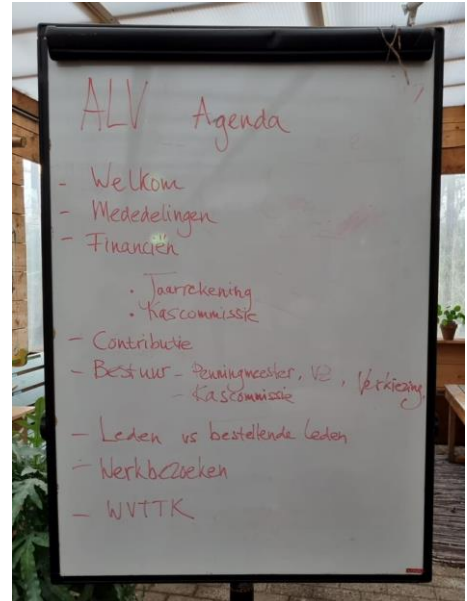 ALV Agenda
- Welkom
- Mededelingen
- Financiën
• Jaarrekening
• Kascommissie
- Contributie
- Bestuur - Penningmeester, VZ, Verkiezing
- Kascommissie
- Leden vs bestellende leden
- Werkbezoeken
- WVTTK